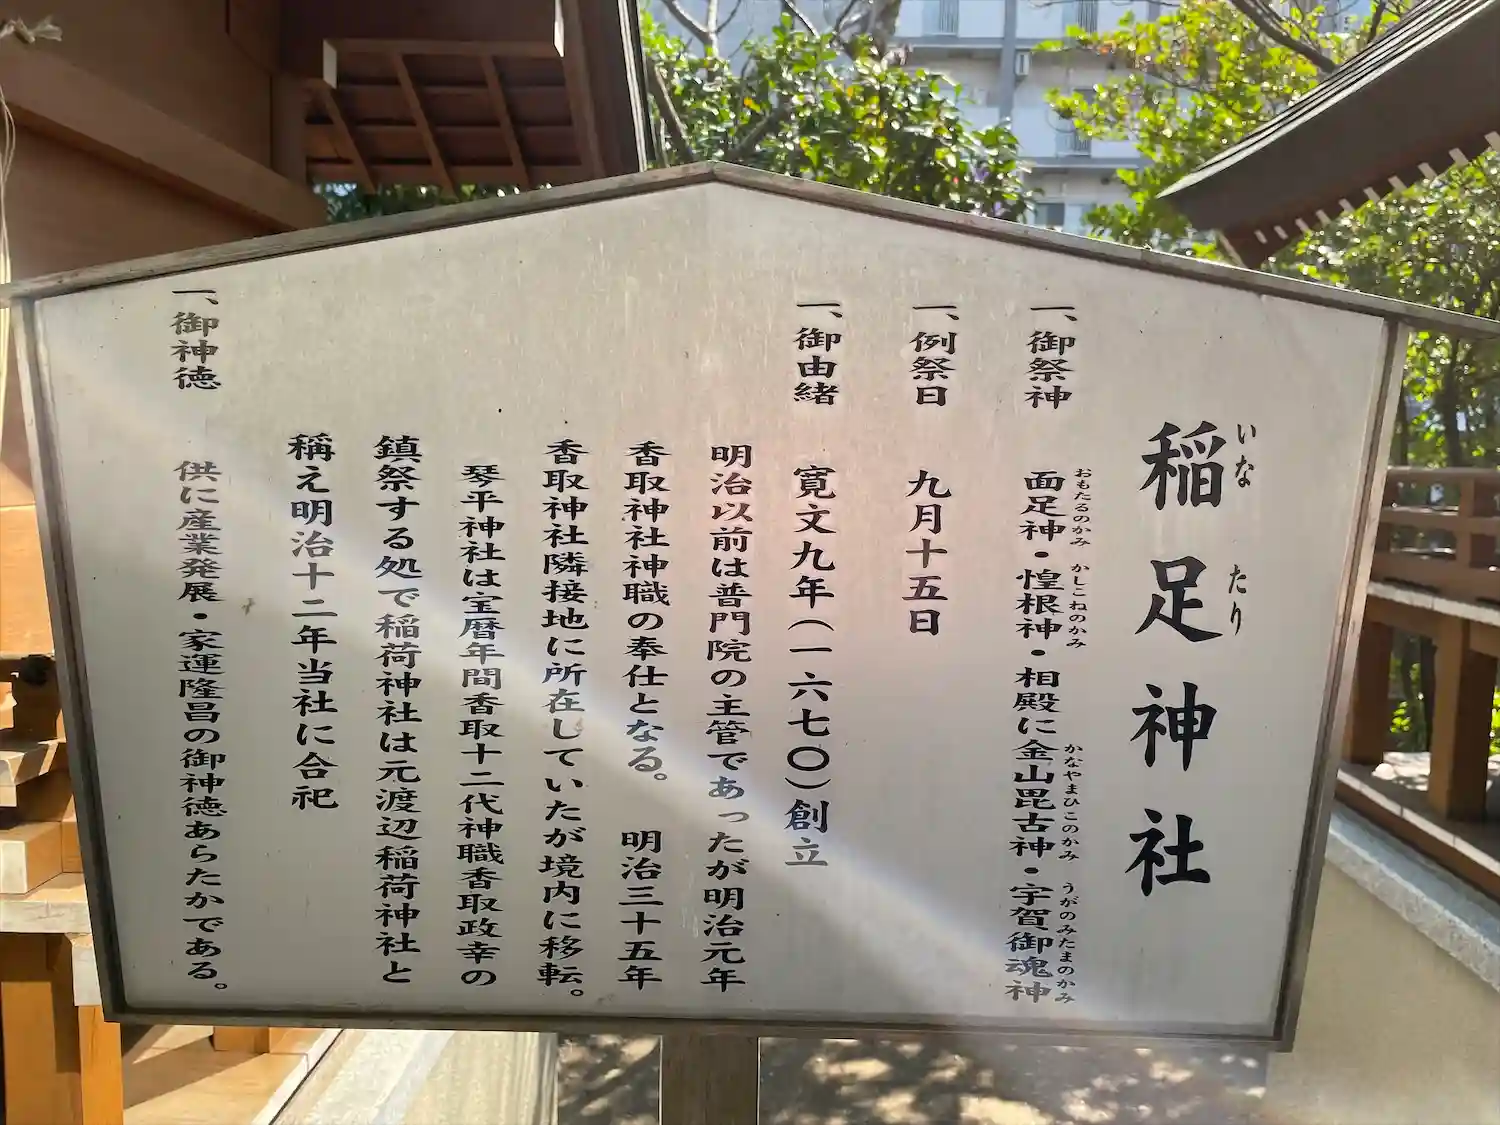 稲足神社
いな たり
一、御祭神 面足神・惶根神・相殿に金山毘古神・宇賀御魂神
おもたるのかみ かしこねのかみ かなやまひこのかみ うがのみたまのかみ
一、例祭日 九月十五日
一、御由緒 寛文九年(一六七〇)創立
明治以前は普門院の主管であったが明治元年
香取神社神職の奉仕となる。 明治三十五年
香取神社隣接地に所在していたが境内に移転。
琴平神社は宝暦年間香取十二代神職香取政幸の
鎮祭する処で稲荷神社は元渡辺稲荷神社と
稱え明治十二年当社に合祀
一、御神徳 供に産業発展・家運隆昌の御神徳あらたかである。